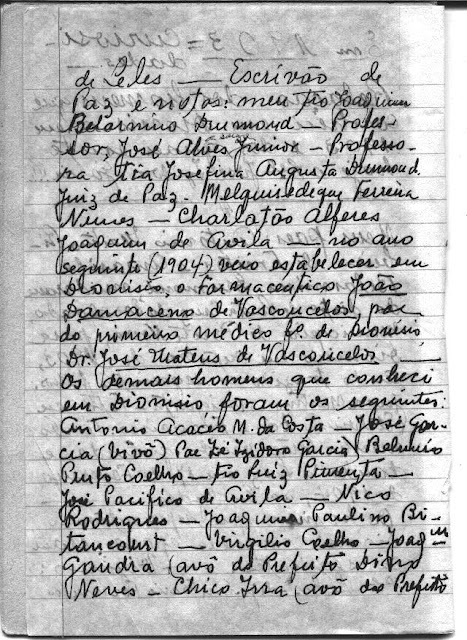 de Leles — Escrivão de
Paz e notas: meu tio Joaquim
Belarmino Drumond — Profes-
sor, José Alves Junior — Professo-
ra tia Josefina Augusta Drumond.
Juiz de Paz. Melquisedique Ferreira
Nunes — Charlatão Alferes
Joaquim de Avila — no ano
seguinte (1904) veio estabelecer em
Dionisio, o farmaceutico João
Damaceno de Vasconcelos, pae
do primeiro médico fº. de Dionisio
Dr. José Mateus de Vasconcelos —
Os demais homens que conheci
em Dionisio foram os seguintes:
Antonio Acacio M. da Costa — José Gar-
cia (vivô) Pae Zé Izidoro Garcia) Belmiro
Pinto Coelho — tio Luiz Pimenta —
José Pacifico de Avila — Nico
Rodrigues — Joaquim Paulino Bi-
tancourt — Virgilio Coelho — Joaqim
Gandra (avô do Prefeito
Neves — Chico Irra (avô do Prefeito